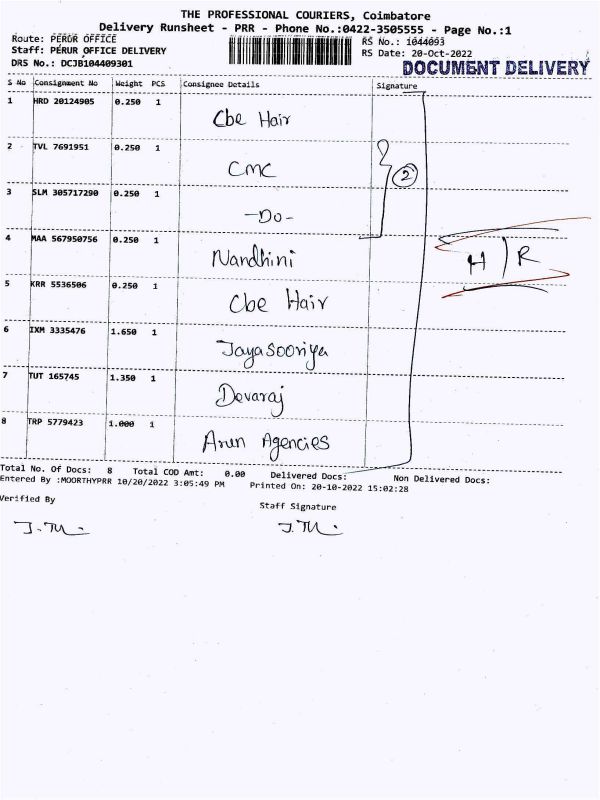 THE PROFESSIONAL COURIERS, Coimbatore
Delivery Runsheet - PRR - Phone No.:0422-3505555 - Page No.:1
Route: PERUR OFFICE RS No.: 1044093
Staff: PERUR OFFICE DELIVERY RS Date: 20-Oct-2022
DRS No.: DCJB104409301 DOCUMENT DELIVERY
S No Consignment No Weight PCS Consignee Details Signature
1 HRD 20124905 0.250 1 Cbe Hair
2 TVL 7691951 0.250 1 CMC 2
3 SLM 305717290 0.250 1 -Do-
4 MAA 567950756 0.250 1 Nandhini H/R
5 KRR 5536506 0.250 1 Cbe Hair
6 IXM 3335476 1.650 1 Jayasooriya
7 TUT 165745 1.350 1 Devaraj
8 TRP 5779423 1.000 1 Arun Agencies
Total No. Of Docs: 8 Total COD Amt: 0.00 Delivered Docs: Non Delivered Docs:
Entered By :MOORTHYPRR 10/20/2022 3:05:49 PM Printed On: 20-10-2022 15:02:28
Verified By Staff Signature